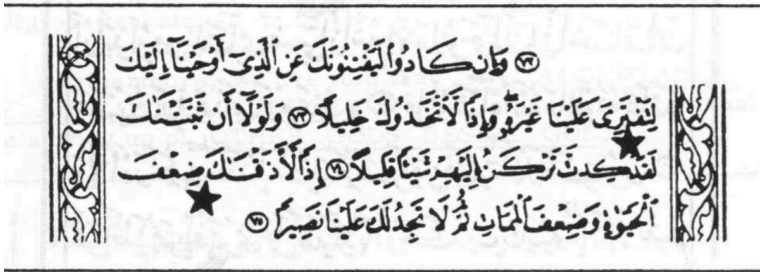 ﴿٧٢﴾ وَإِن كَادُوا۟ لَيَفْتِنُونَكَ عَنِ ٱلَّذِىٓ أَوْحَيْنَآ إِلَيْكَ
لِتَفْتَرِىَ عَلَيْنَا غَيْرَهُۥ ۖ وَإِذًا لَّٱتَّخَذُوكَ خَلِيلًا ﴿٧٣﴾ وَلَوْلَآ أَن ثَبَّتْنَٰكَ
لَقَدْ كِدتَّ تَرْكَنُ إِلَيْهِمْ شَيْـًٔا قَلِيلًا ﴿٧٤﴾ إِذًا لَّأَذَقْنَٰكَ ضِعْفَ
ٱلْحَيَوٰةِ وَضِعْفَ ٱلْمَمَاتِ ثُمَّ لَا تَجِدُ لَكَ عَلَيْنَا نَصِيرًا ﴿٧٥﴾